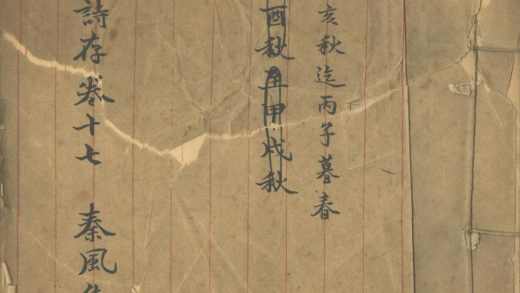 亥秋迄丙子暮春
酉秋甲戌秋
詩存卷十七 秦風